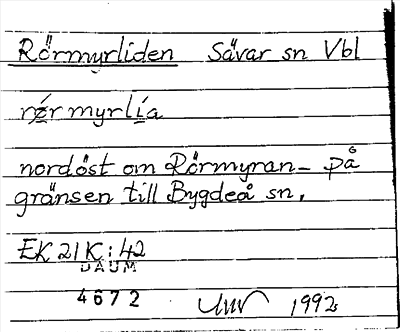 Rörmyrliden Sävar sn Vbl
nordöst om Rörmyran - på
gränsen till Bygdeå sn.
EK 21K: 42
DAUM
4672
1992